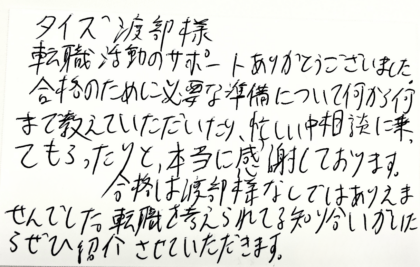 タイズ 渡部様
転職活動のサポートありがとうございました
合格のために必要な準備について何から何
まで教えていただいたり、忙しい中相談に乗っ
てもらったりと、本当に感謝しております。
合格は渡部様なしではありえま
せんでした。転職を考えられてる知り合いがいた
らぜひ紹介させていただきます。